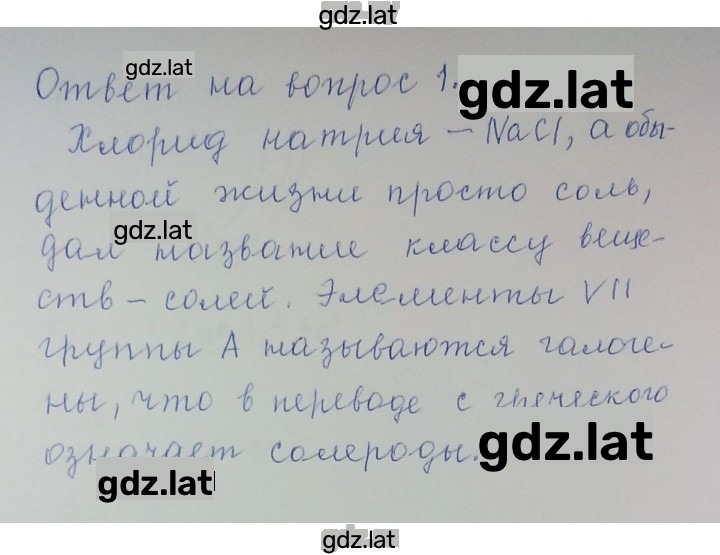 gdz.lat
Ответ на вопрос 1.
gdz.lat
gdz.lat
Хлорид натрия – NaCl, а обы-
денной жизни просто соль,
gdz.lat
дал название классу веще-
ств – солей. Элементы VII
группы А называются галоге-
ны, что в переводе с греческого
означает солероды.
gdz.lat
gdz.lat
gdz.lat